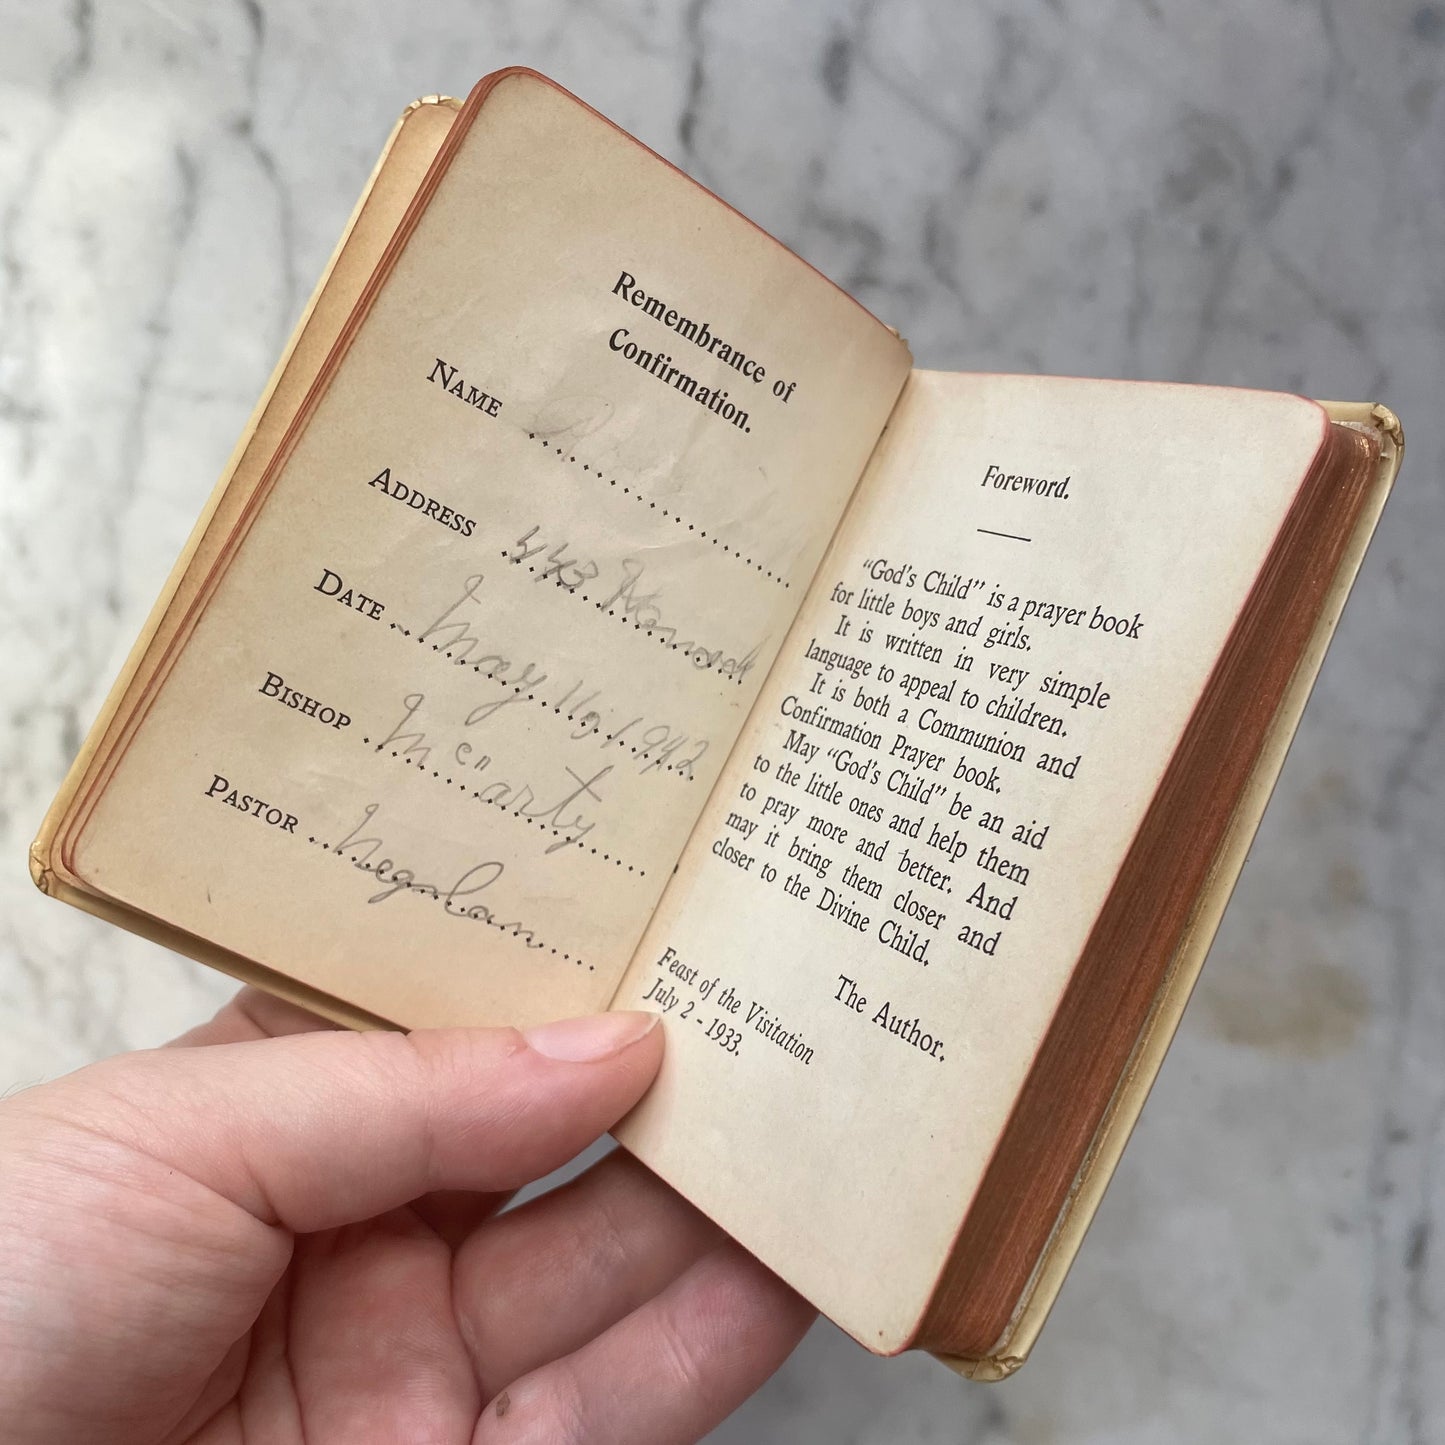 Remembrance of
Confirmation.
NAME
ADDRESS 443
DATE May 16, 1942
BISHOP McCarty
PASTOR
Foreword.
“God's Child” is a prayer book
for little boys and girls.
It is written in very simple
language to appeal to children.
It is both a Communion and
Confirmation Prayer book.
May “God's Child” be an aid
to the little ones and help them
to pray more and better. And
may it bring them closer and
closer to the Divine Child.
The Author.
Feast of the Visitation
July 2 - 1933.